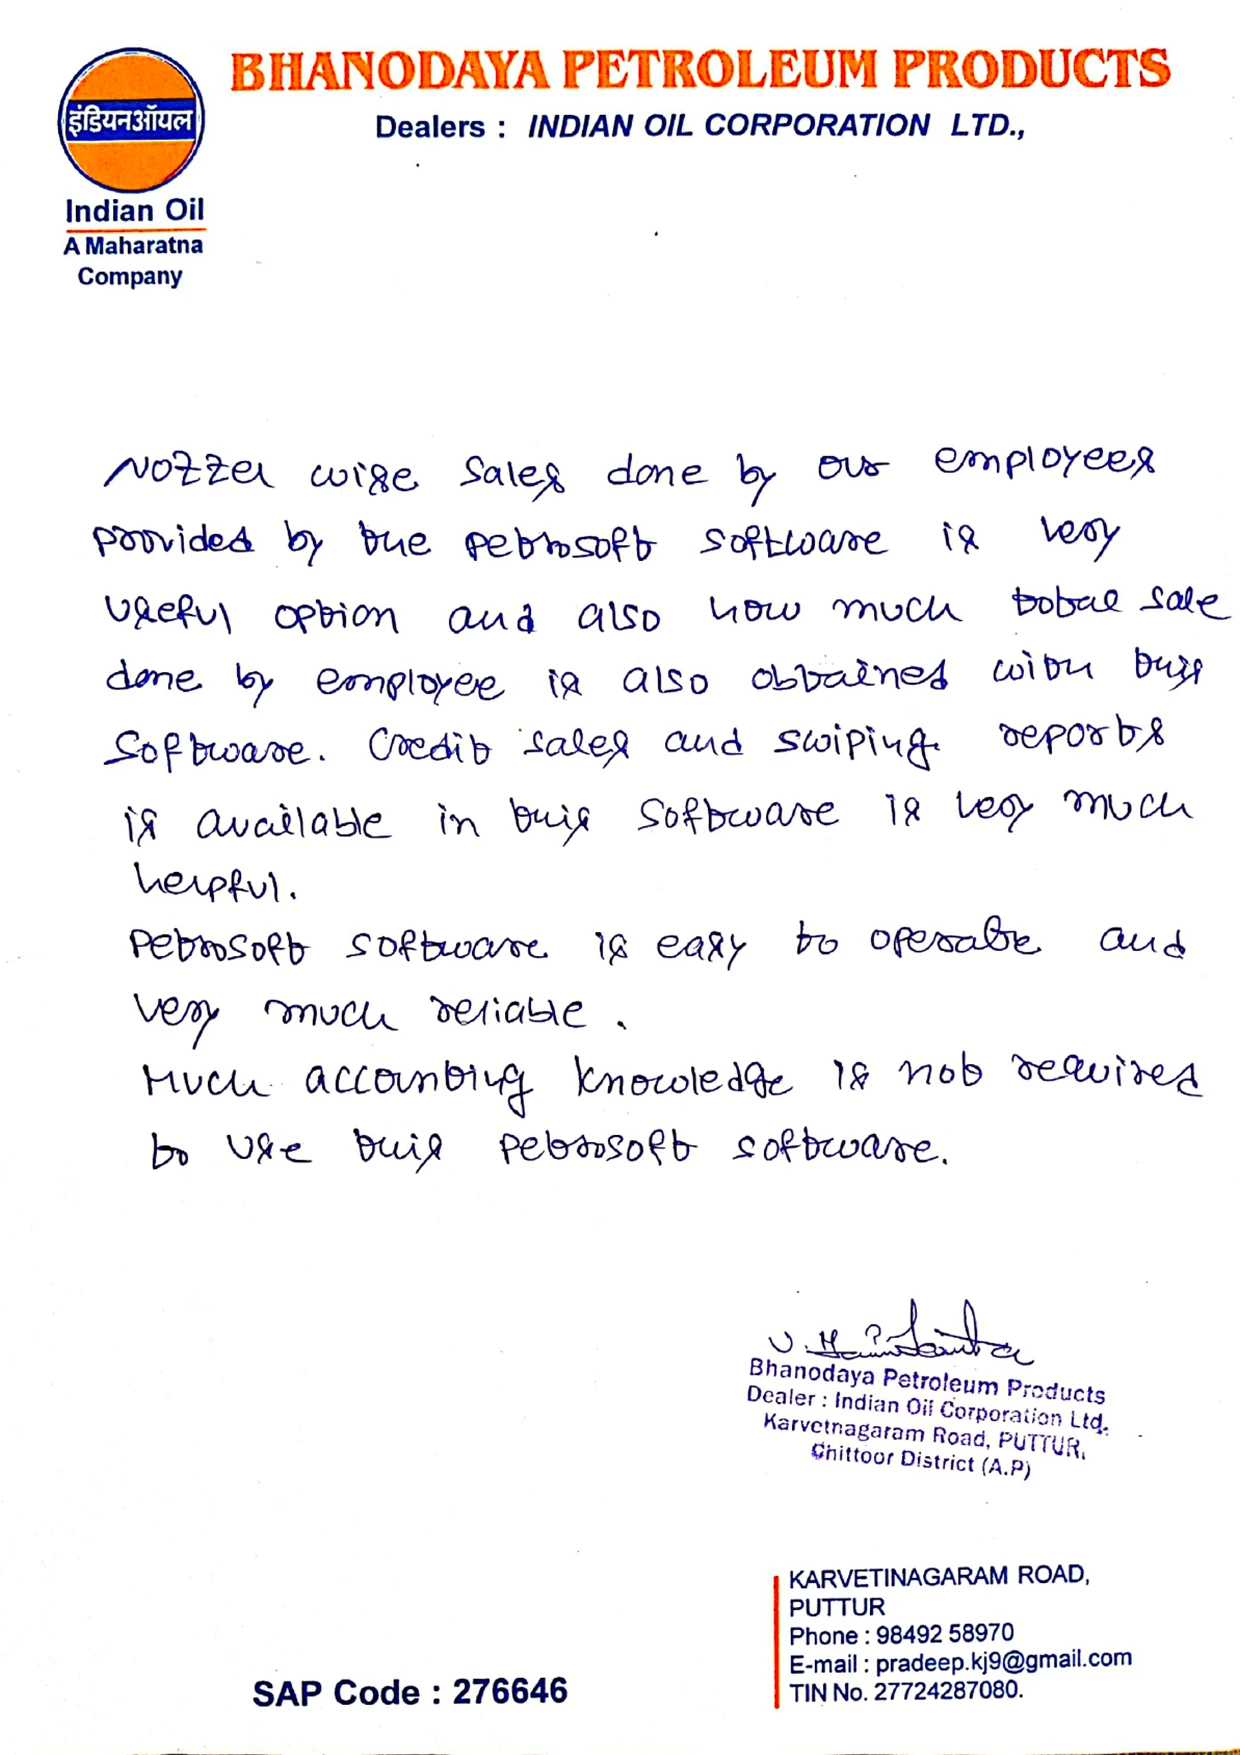 BHANODAYA PETROLEUM PRODUCTS
Dealers : INDIAN OIL CORPORATION LTD.,
इंडियनऑयल
Indian Oil
A Maharatna
Company
Nozzel wise sales done by our employees
provided by the petrosoft software is very
useful option and also how much total sale
done by employee is also obtained with this
software. Credit sales and swiping reports
is available in this software is very much
helpful.
Petrosoft software is easy to operate and
very much reliable.
Much accounting knowledge is not required
to use this petrosoft software.
Bhanodaya Petroleum Products
Dealer : Indian Oil Corporation Ltd.
Karvetnagaram Road, PUTTUR,
Chittoor District (A.P)
KARVETINAGARAM ROAD,
PUTTUR
Phone : 98492 58970
E-mail : pradeep.kj9@gmail.com
TIN No. 27724287080.
SAP Code : 276646